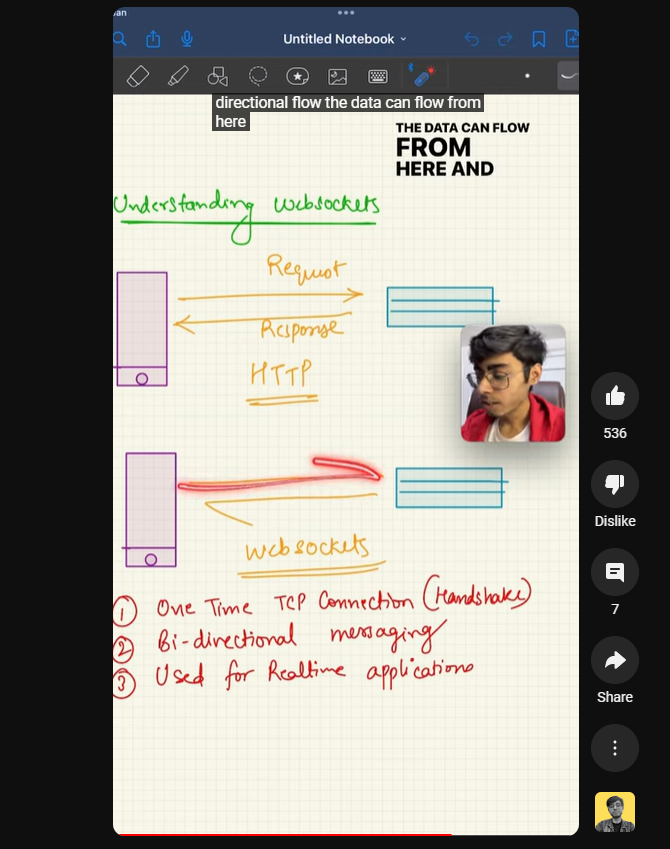 Untitled Notebook
directional flow the data can flow from
here
THE DATA CAN FLOW
FROM
HERE AND
Understanding Websockets
Request
Response
HTTP
536
Dislike
Websockets
7
① One Time TCP Connection (Handshake)
② Bi-directional messaging
③ Used for Realtime applications
Share